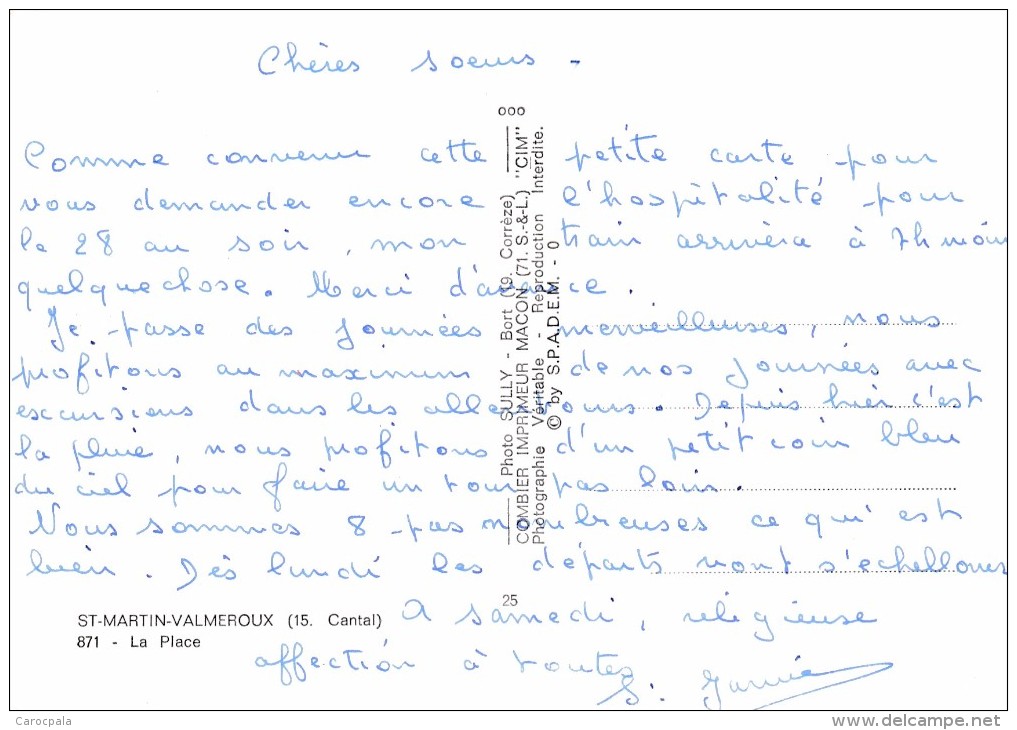 Chères soeurs -
Comme convenu cette petite carte pour
vous demander encore l'hospitalité pour
le 28 au soir, mon train arrivera à 7h moins
quelquechose. Merci d'avance.
Je passe des journées merveilleuses, nous
profitons au maximum de nos journées avec
excursions dans les alentours. Depuis hier c'est
la pluie, nous profitons d'un petit coin bleu
du ciel pour faire un tour pas loin.
Nous sommes 8 pas nombreuses ce qui est
bien. Dès lundi les départs vont s'echellonner
A samedi, religieuse
affection à toutes
S.
ooo
Photo SULLY - Bort (19. Corrèze)
COMBIER IMPRIMEUR MACON (71. S.-&-L.) "CIM"
Photographie Véritable - Reproduction Interdite.
© by S.P.A.D.E.M. - 0
25
ST-MARTIN-VALMEROUX (15. Cantal)
871 - La Place
Carocpala
www.delcampe.net